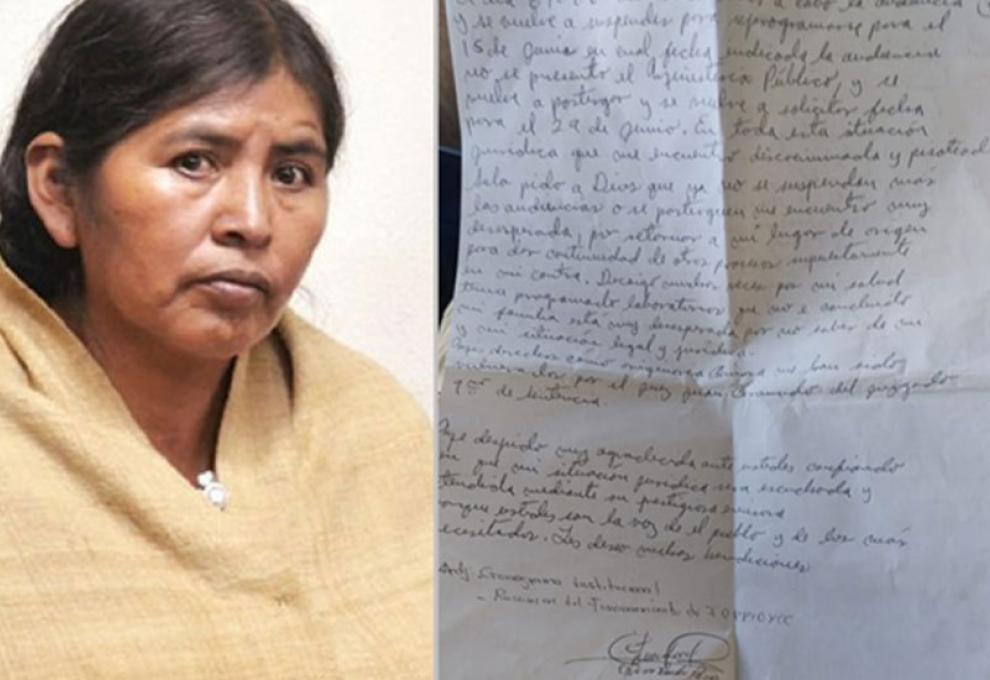 y se vuelve a suspender para reprogramarse para el
15 de Junio en cual fecha indicada la audiencia
no se presento el Ministerio Público, y se
vuelve a postergar y se vuelve a solicitar fecha
para el 29 de Junio. En toda esta situación
jurídica que me encuentro discriminada y pisotead
Solo pido a Dios que ya no se suspendan mas
las audiencias o se posterguen me encuentro muy
desesperada, por retornar a mi lugar de origen
para dar continuidad de otros procesos supuestamente
en mi contra. Decaigo muchas veces por mi salud
tenia programado laboratorios que no e concluido
mi familia está muy desesperada por no saber de mi
y mi situación legal y jurídica.
derechos como originaria no han sido
vulnerados por el juez juzgado
1ero de Sentencia.
despido muy agradecida ante ustedes confiando
en que mi situación jurídica sea escuchada y
mediante su prestigiosa
ustedes son la voz de el pueblo y de los más
ecesitados. Les deseo muchas bendiciones
Adj: Cronograma Institucional